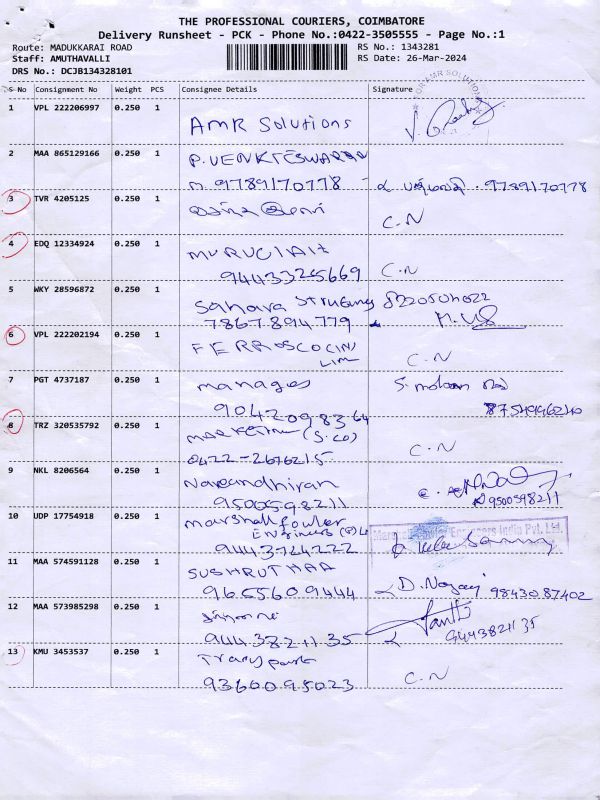 THE PROFESSIONAL COURIERS, COIMBATORE
Delivery Runsheet - PCK - Phone No.:0422-3505555 - Page No.:1
Route: MADUKKARAI ROAD
Staff: AMUTHAVALLI
DRS No.: DCJB134328101
RS No.: 1343281
RS Date: 26-Mar-2024
S No Consignment No Weight PCS Consignee Details Signature
1 VPL 222206997 0.250 1 AMR Solutions
2 MAA 865129166 0.250 1 P. VENKTESWARAN
M. 9789170778 9789170778
3 TVR 4205125 0.250 1 C.N
4 EDQ 12334924 0.250 1 C.N
9443325669
5 WKY 28596872 0.250 1 Sahara
7867894779
6 VPL 222202194 0.250 1 C.N
7 PGT 4737187 0.250 1 manager S. mohan
9042098364
8 TRZ 320535792 0.250 1 (S.CO) C.N
0422-2676215
9 NKL 8206564 0.250 1 Naveandhiran
9500598211 9500598211
10 UDP 17754918 0.250 1 Marshall fowler
Engineers (P) L
9443724222
11 MAA 574591128 0.250 1 SUSHRUTHAA
9655609444 9843087402
12 MAA 573985298 0.250 1
9443821135 9443821135
13 KMU 3453537 0.250 1 Transport C.N
9360095023